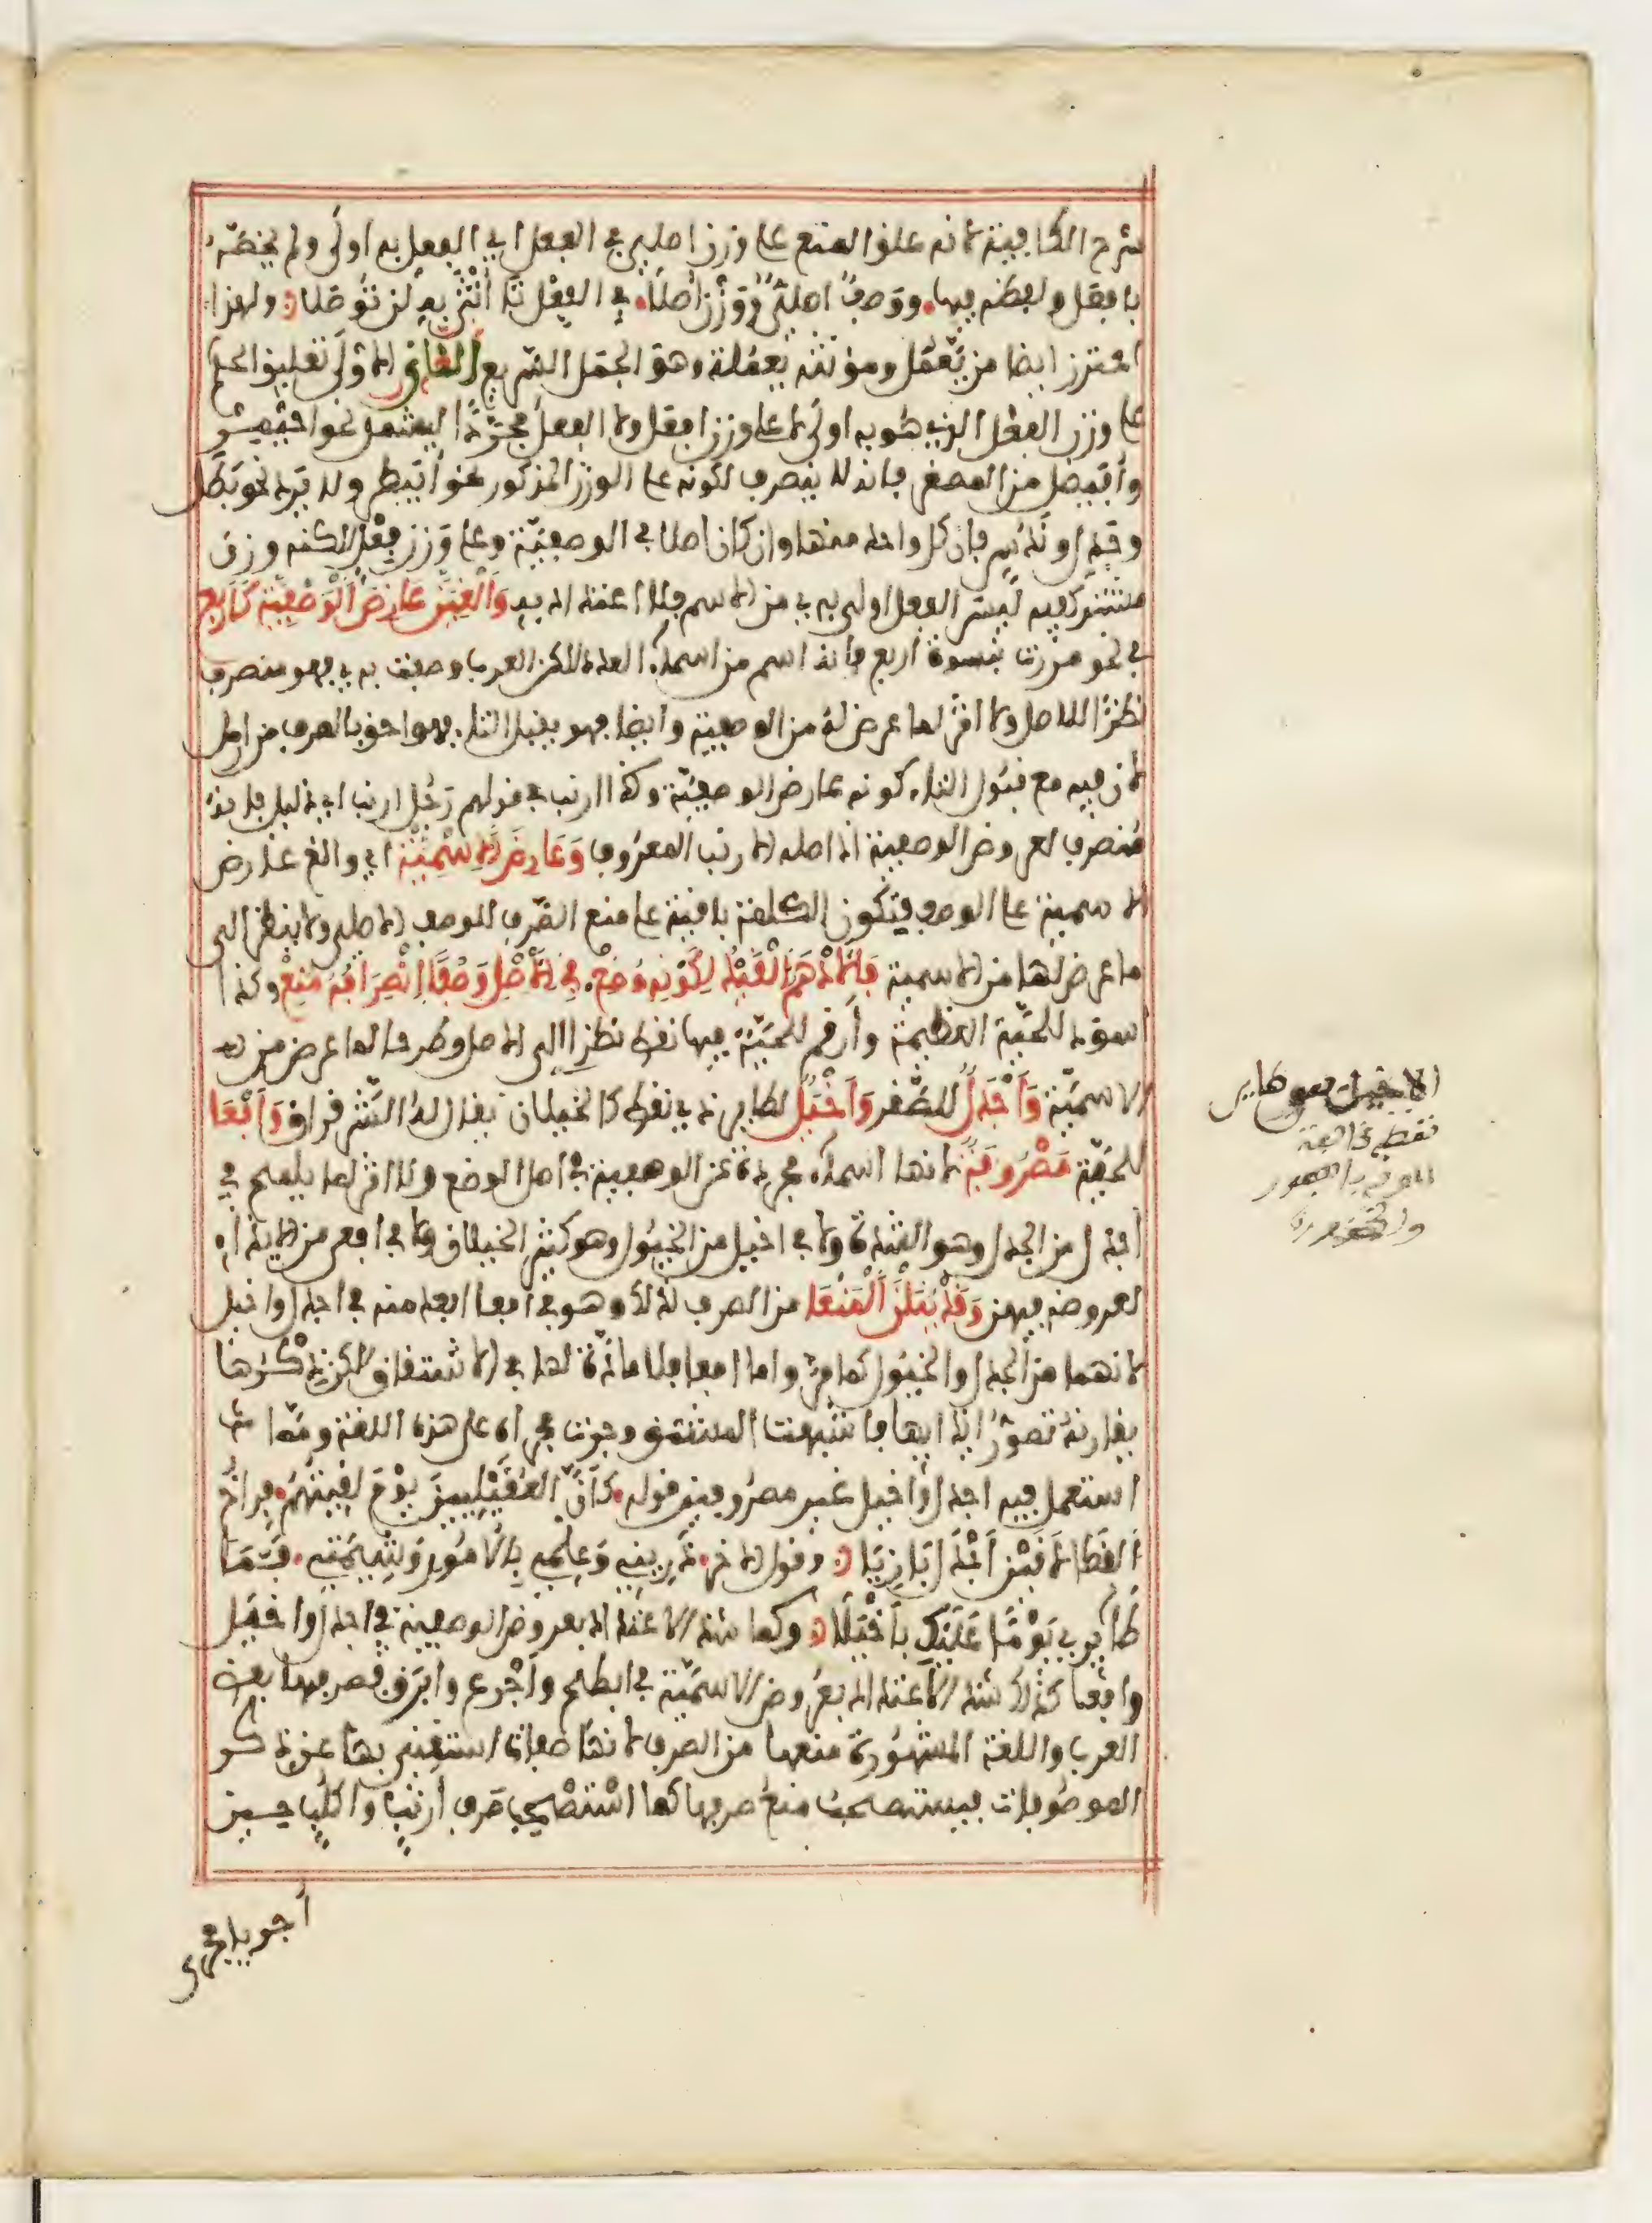 شرح الكافية لانه علق المنع على وزن اصلي في الفعل اي الفعل به اولى ولم يخصه
بافعل ولفظه فيها ووصف اصلي ووزن أصلا في الفعل تا أنثى به لن توصلا ولهذا
احترز ايضا من يعمل ومؤنثه يعملة وهو الجمل السريع الثاني الاولى تعليق الحكم
على وزن الفعل الذي هو به اولى لا على وزن افعل ولا الفعل مجردا ليشمل نحو احيمر
وأفيضل من المصغر فانه لا ينصرف لكونه على الوزن المذكور نحو أبيطر ولا يرد نحو بطل
وجدل وندس فإن كل واحد منها وان كان اصلا في الوصفية وعلى وزن فعل لكنه وزن
مشترك فيه ليس الفعل اولى به من الاسم فلا اعتداد به وألغين عارض الوصفية كأربع
في نحو مررت بنسوة اربع فانه اسم من اسماء العدد لكن العرب وصفت به فهو منصرف
نظرا للاصل ولا نظر لما عرض له من الوصفية وايضا فهو يقبل التاء فهو احق بالصرف من ارمل
لان فيه مع قبول التاء كونه عارض الوصفية وكذا ارنب في قولهم رجل ارنب اي ذليل فانه
منصرف لعروض الوصفية اذ اصله الارنب المعروف وعارض الاسمية اي والغ عارض
الاسمية على الوصف فتكون الكلمة باقية على منع الصرف للوصف الاصلي ولا ينظر الى
ما عرض لها من الاسمية فالأدهم القيد لكونه وضع في الأصل وصفا انصرافه منع وكذا
اسود للحية العظيمة وأرقم لحية فيها نقط نظرا الى الاصل وطرحا لما عرض من
الاسمية وأجدل للصقر وأخيل لطاير ذي نقط كالخيلان يقال له الشقراق وأفعا
للحية مصروفة لانها اسماء مجردة عن الوصفية في اصل الوضع ولا اثر لما يلمح في
أجدل من الجدل وهو الشدة ولا في اخيل من الخيول وهو كثير الخيلان ولا في افعى من الايذاء
لعروضه فيهن وقد ينلن المنعا من الصرف لذلك وهو في افعا ابعد منه في اجدل واخيل
لانهما من الجدل والخيول كما مر واما افعا فلا مادة لها في الاشتقاق لكن ذكرها
يقارنه تصور ايذائها فاشبهت المشتق وجرت مجراه على هذه اللغة ومما
استعمل فيه اجدل واخيل غير مصروفين قوله كأن العقيليين يوم لقيتهم فراخ
القطا لاقين أجدل بازيا وقول الاخر ذريني وعلمي بالامور وشيمتي فما
طايري يوما عليك بأخيلا وكما شذ الاعتداد بعروض الوصفية في اجدل واخيل
وافعا كذلك شذ الاعتداد بعروض الاسمية في ابطح وأجرع وابرق فصرفها بعض
العرب واللغة المشهورة منعها من الصرف لانها صفات استغني بها عن ذكر
الموصوفات فيستصحب منع صرفها كما استصحب صرف أرنب واكلب حين
أجريا مجرى
الاخيل هو طاير